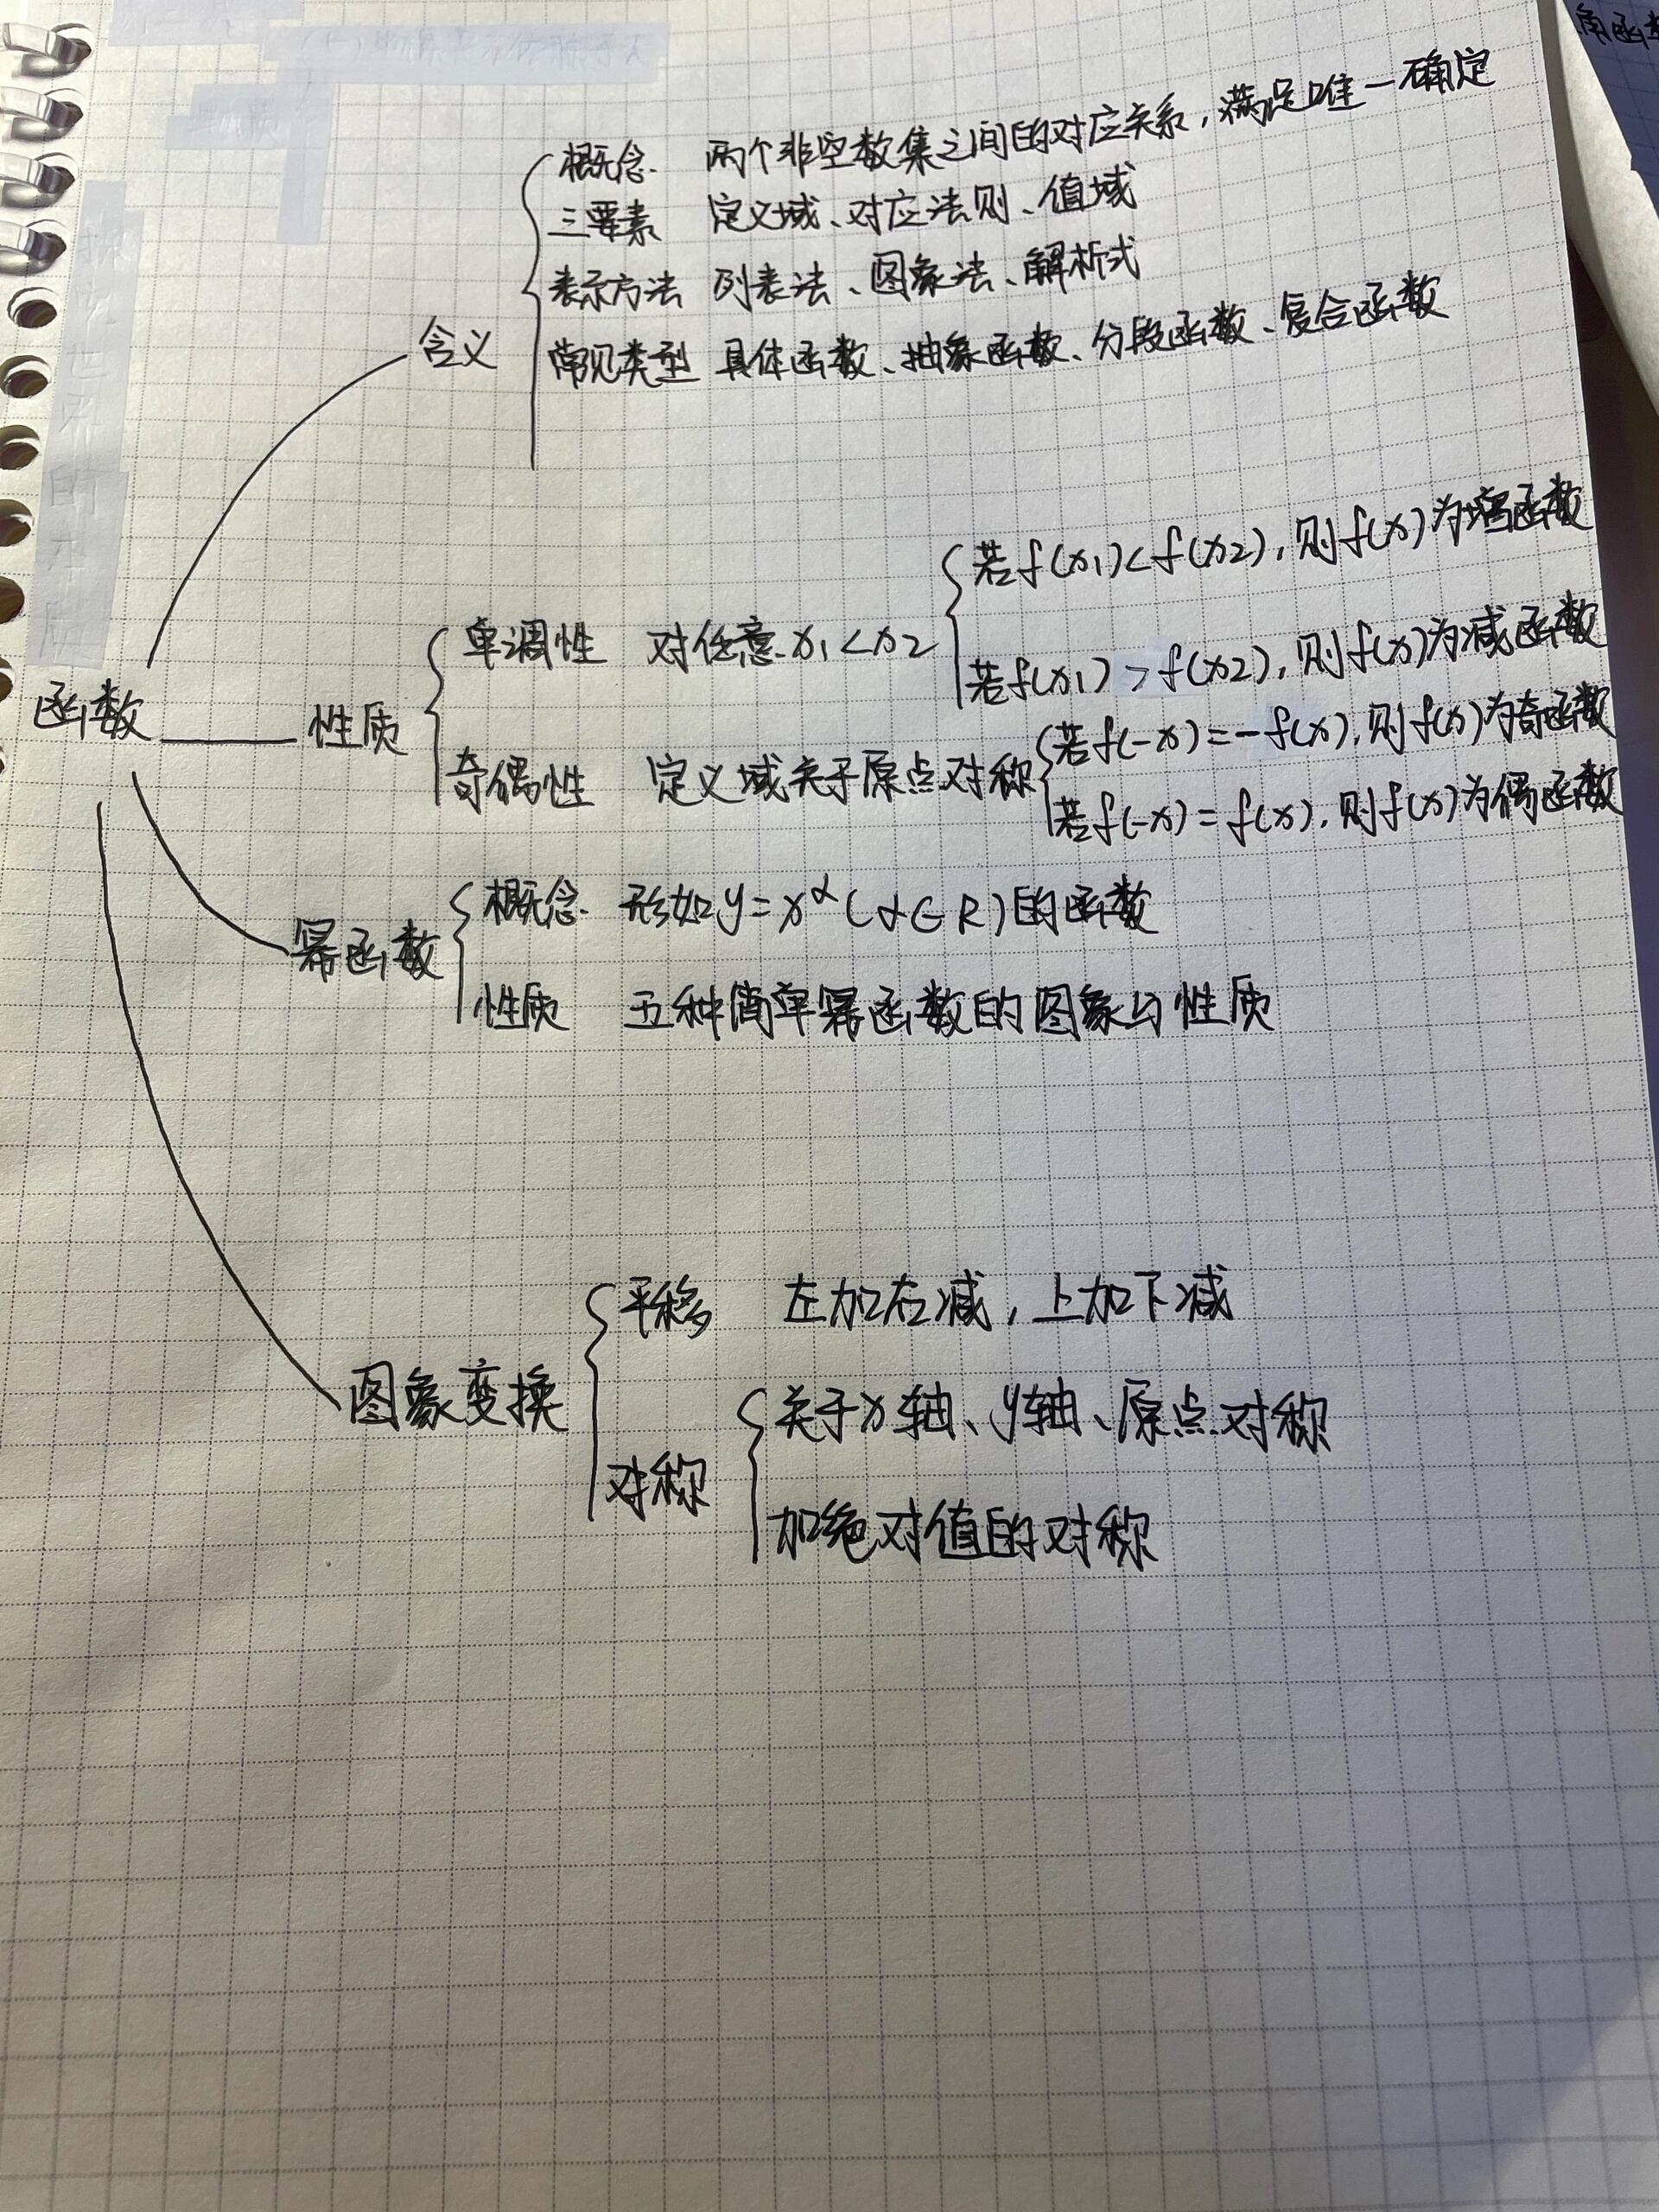 概念 两个非空数集之间的对应关系，满足唯一确定
三要素 定义域、对应法则、值域
表示方法 列表法、图象法、解析式
含义
常见类型 具体函数、抽象函数、分段函数、复合函数
若f(x1)<f(x2)，则f(x)为增函数
单调性 对任意x1<x2
若f(x1)>f(x2)，则f(x)为减函数
函数
性质
若f(-x)=-f(x)，则f(x)为奇函数
奇偶性 定义域关于原点对称
若f(-x)=f(x)，则f(x)为偶函数
概念 形如y=x^α(α∈R)的函数
幂函数
性质 五种简单幂函数的图象与性质
平移 左加右减，上加下减
图象变换
关于x轴、y轴、原点对称
对称
加绝对值的对称
角函数